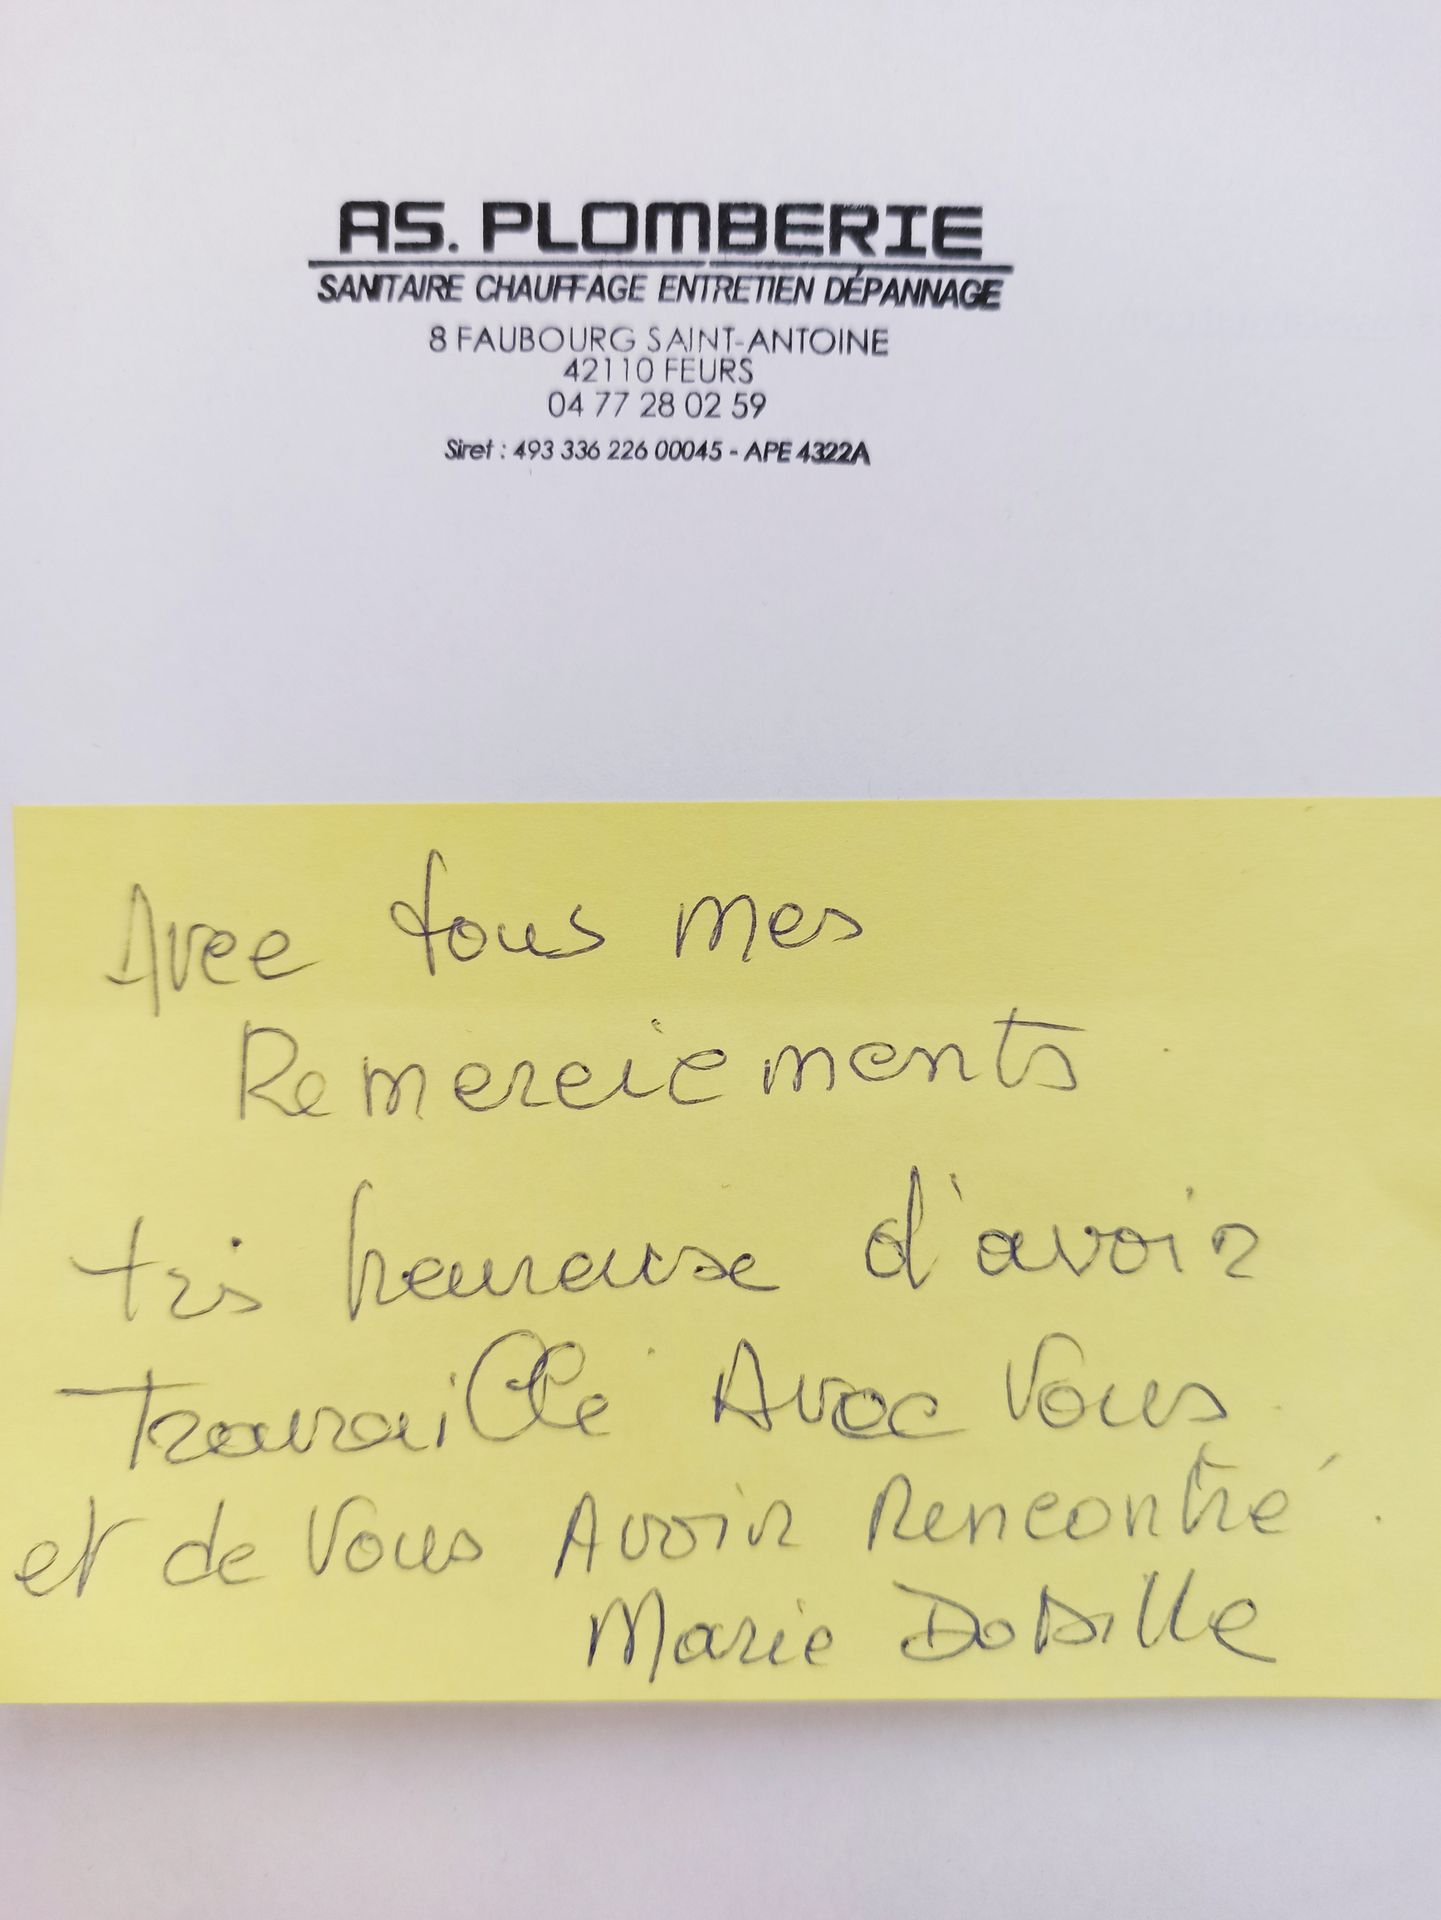 AS. PLOMBERIE
SANITAIRE CHAUFFAGE ENTRETIEN DÉPANNAGE
8 FAUBOURG SAINT-ANTOINE
42110 FEURS
04 77 28 02 59
Siret : 493 336 226 00045 - APE 4322A
Avec tous mes
Remerciements
très heureuse d'avoir
travaillé Avec Vous
et de Vous Avoir Rencontré.
Marie